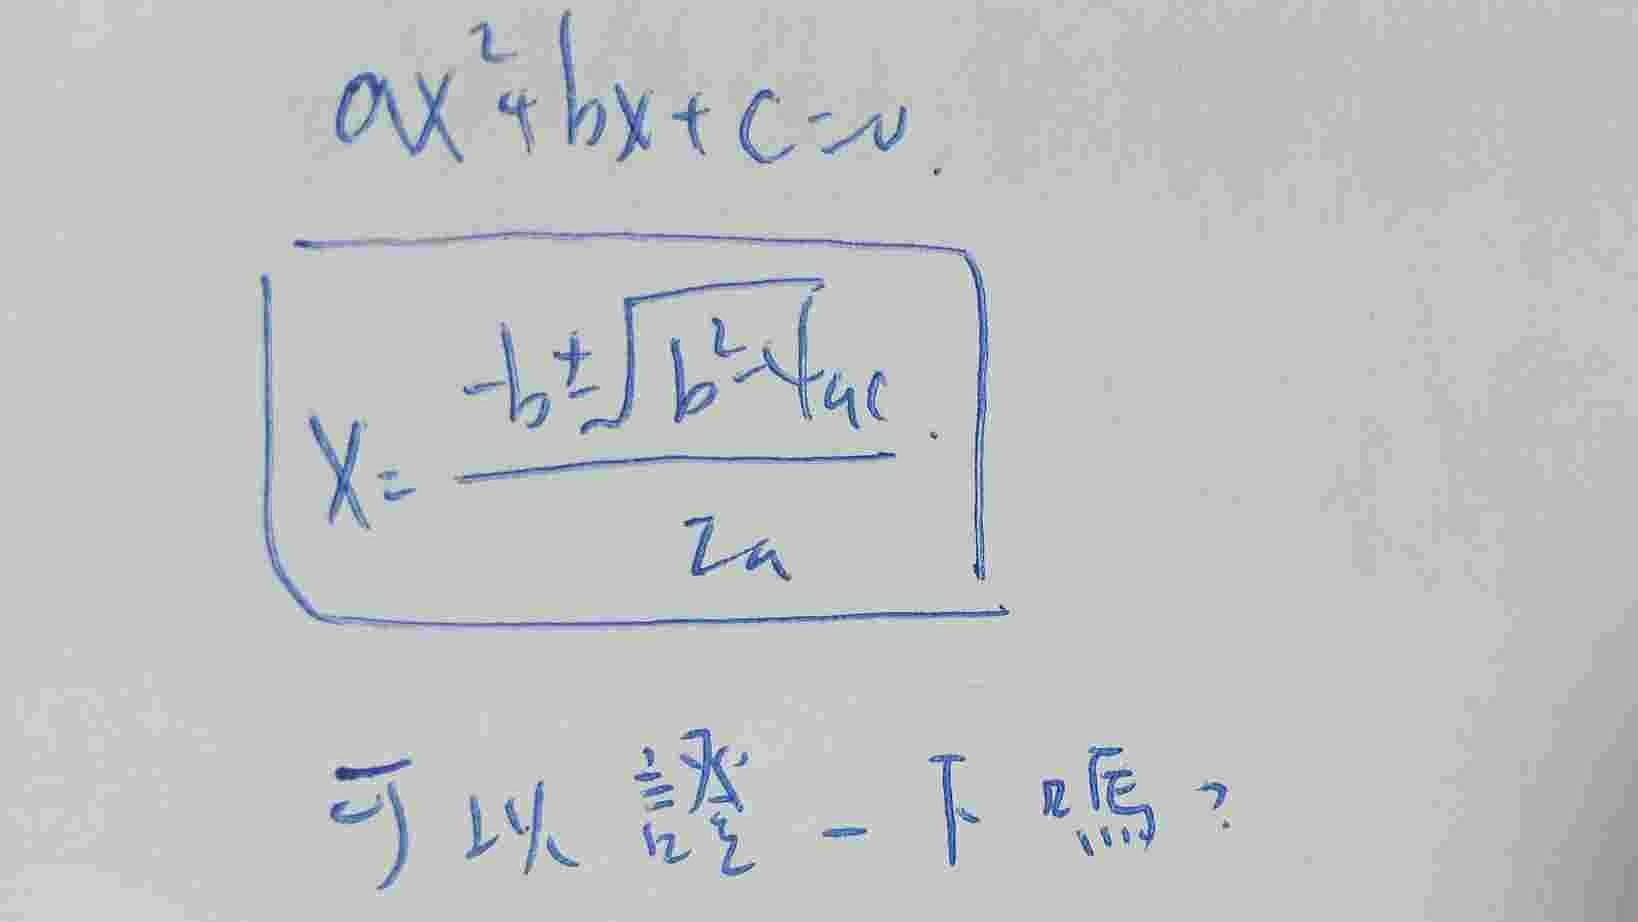 ax²+bx+c=0.
x= -b±√b²-4ac / 2a .
可以證一下嗎?